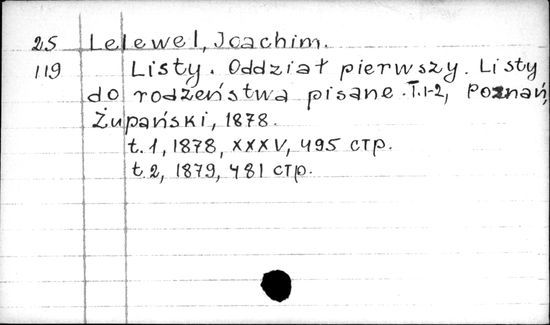 25 Lelewel, Joachim.
119 Listy. Oddział pierwszy. Listy
do rodzeństwa pisane. T.1-2, Poznań,
Żupański, 1878.
t.1, 1878, XXXV, 495 стр.
t.2, 1879, 481 стр.